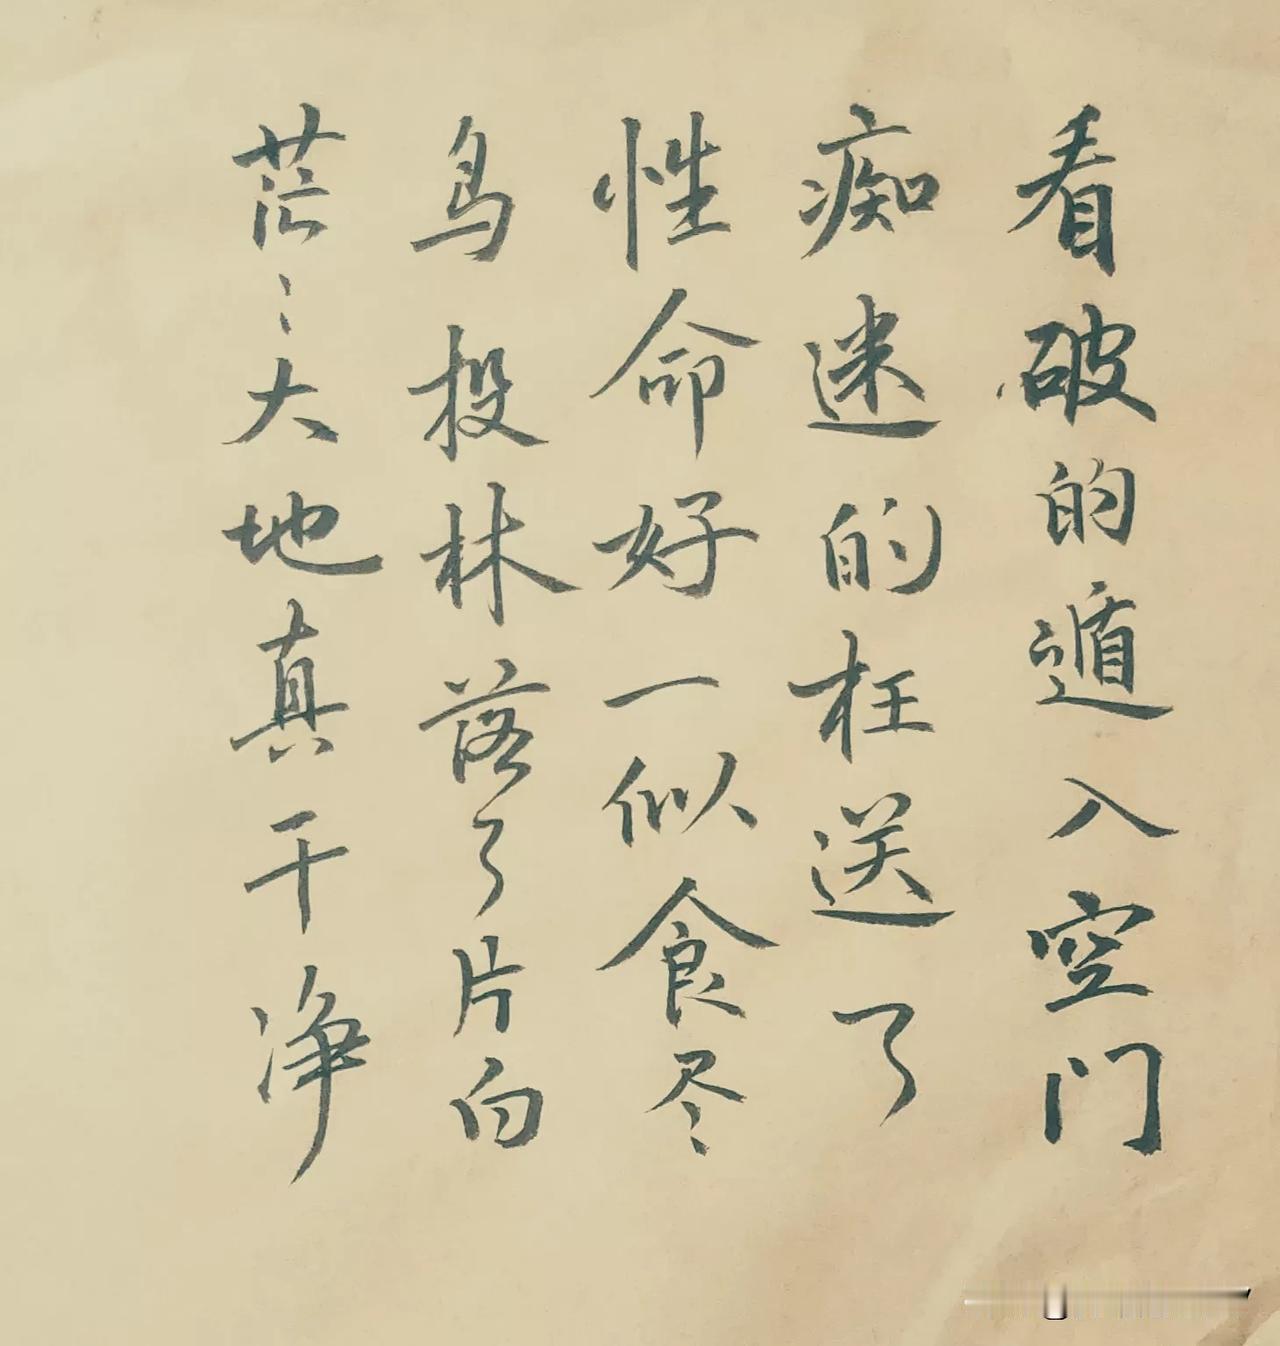 看破的遁入空门
痴迷的枉送了
性命好一似食尽
鸟投林落了片白
茫々大地真干净